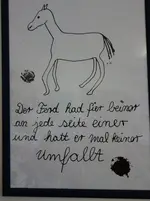 Der Ferd had fier beiner
an jede seite einer
und hatt er mal keiner
umfallt